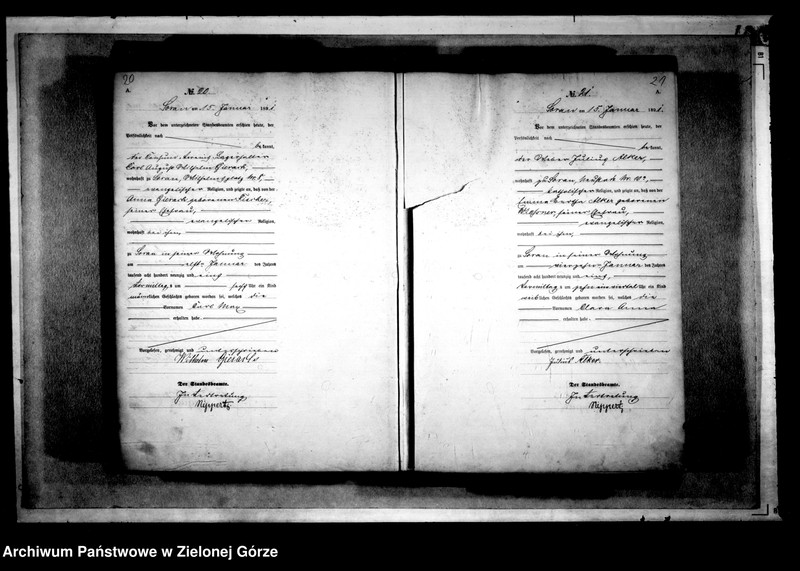 20
A.
№ 20.
Sorau am 15. Januar 1881.
Vor dem unterzeichneten Standesbeamten erschien heute, der
Persönlichkeit nach
bekannt,
Lagerhalter
Carl August Wilhelm
wohnhaft zu Sorau, Wilhelmsplatz Nr.
evangelischer Religion, und zeigte an, daß von der
Anna geborenen Fischer,
seiner Ehefrau,
evangelischer Religion,
wohnhaft bei ihm,
zu Sorau in seiner Wohnung
am elften Januar des Jahres
tausend acht hundert neunzig und eins
Vormittags um Uhr ein Kind
männlichen Geschlechts geboren worden sei, welches die
Vornamen Carl Max
erhalten habe.
Vorgelesen, genehmigt und unterschrieben
Wilhelm
Der Standesbeamte.
In Vertretung
Nippert
21
A.
№ 21.
Sorau am 15. Januar 1881.
Vor dem unterzeichneten Standesbeamten erschien heute, der
Persönlichkeit nach
bekannt,
der Weber Julius Alker,
wohnhaft zu Sorau,
katholischer Religion, und zeigte an, daß von der
Emma Bertha Alker geborenen
seiner Ehefrau,
evangelischer Religion,
wohnhaft bei ihm,
zu Sorau in seiner Wohnung
am vierzehnten Januar des Jahres
tausend acht hundert neunzig und eins,
Vormittags um zehn ein viertel Uhr ein Kind
weiblichen Geschlechts geboren worden sei, welches die
Vornamen Clara Anna
erhalten habe.
Vorgelesen, genehmigt und unterschrieben
Julius Alker.
Der Standesbeamte.
In Vertretung
Nippert
Archiwum Państwowe w Zielonej Górze